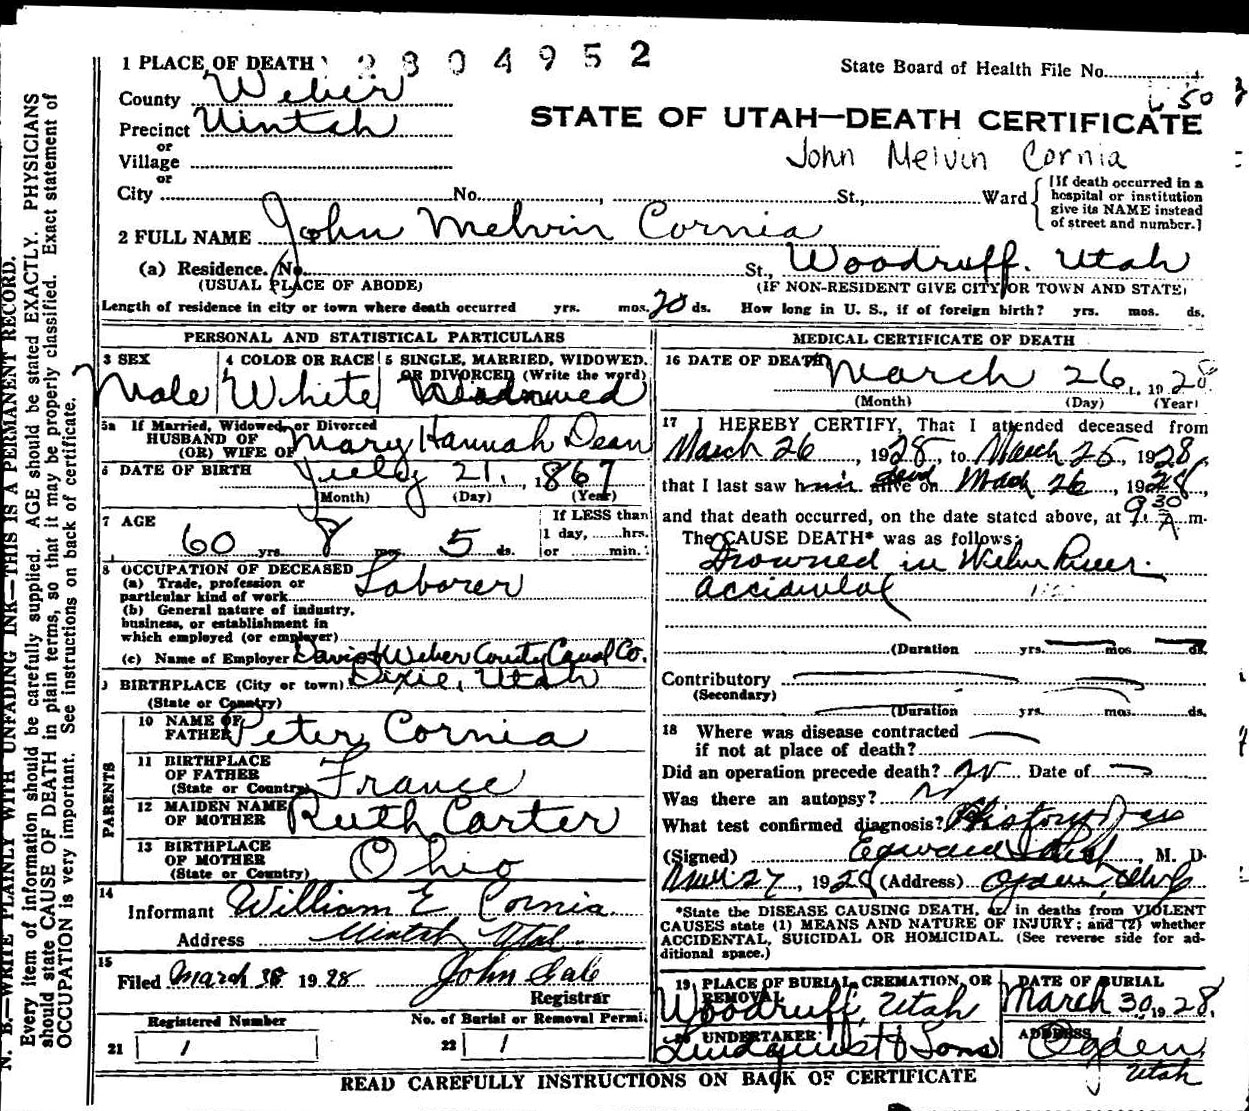 1 PLACE OF DEATH 2804952
State Board of Health File No.
County Weber
50
STATE OF UTAH—DEATH CERTIFICATE
Precinct Uintah
or
Village
John Melvin Cornia
or
City No. , St., Ward
[If death occurred in a
hospital or institution
give its NAME instead
of street and number.]
2 FULL NAME John Melvin Cornia
(a) Residence. No. St., Woodruff. Utah
(USUAL PLACE OF ABODE) (IF NON-RESIDENT GIVE CITY OR TOWN AND STATE)
Length of residence in city or town where death occurred yrs. mos. 20 ds. How long in U. S., if of foreign birth? yrs. mos. ds.
PERSONAL AND STATISTICAL PARTICULARS
3 SEX 4 COLOR OR RACE 5 SINGLE, MARRIED, WIDOWED,
OR DIVORCED (Write the word)
Male White Widowed
5a If Married, Widowed, or Divorced
HUSBAND OF
(OR) WIFE OF Mary Hannah Dean
6 DATE OF BIRTH July 21, 1867
(Month) (Day) (Year)
7 AGE If LESS than
1 day, hrs.
60 yrs. 8 mos. 5 ds. or min.
8 OCCUPATION OF DECEASED
(a) Trade, profession or
particular kind of work Laborer
(b) General nature of industry,
business, or establishment in
which employed (or employer)
(c) Name of Employer Davis & Weber County Canal Co.
9 BIRTHPLACE (City or town) Dixie, Utah
(State or Country)
PARENTS
10 NAME OF
FATHER Peter Cornia
11 BIRTHPLACE
OF FATHER
(State or Country) France
12 MAIDEN NAME
OF MOTHER Ruth Carter
13 BIRTHPLACE
OF MOTHER
(State or Country) Ohio
14
Informant William E Cornia
Address Uintah Utah
15
Filed March 1928 John Gale
Registrar
Registered Number No. of Burial or Removal Permi.
21 1 22 1
MEDICAL CERTIFICATE OF DEATH
16 DATE OF DEATH March 26, 1928
(Month) (Day) (Year)
17 I HEREBY CERTIFY, That I attended deceased from
March 26, 1928, to March 26, 1928,
that I last saw him alive on dead March 26, 1928,
and that death occurred, on the date stated above, at 9:30 A m.
The CAUSE DEATH* was as follows:
Drowned in Weber River.
accidental
(Duration yrs. mos. ds.
Contributory
(Secondary)
(Duration yrs. mos. ds.
18 Where was disease contracted
if not at place of death?
Did an operation precede death? no Date of
Was there an autopsy? no
What test confirmed diagnosis? History
(Signed) Edward , M. D.
27, 1928 (Address) Ogden, Utah
*State the DISEASE CAUSING DEATH, or, in deaths from VIOLENT
CAUSES state (1) MEANS AND NATURE OF INJURY; and (2) whether
ACCIDENTAL, SUICIDAL OR HOMICIDAL. (See reverse side for ad-
ditional space.)
19 PLACE OF BURIAL, CREMATION, OR
REMOVAL
Woodruff, Utah
DATE OF BURIAL
March 30, 1928.
20 UNDERTAKER
Lindquist & Sons
ADDRESS
Ogden,
Utah
READ CAREFULLY INSTRUCTIONS ON BACK OF CERTIFICATE
N. B.—WRITE PLAINLY WITH UNFADING INK—THIS IS A PERMANENT RECORD.
Every item of information should be carefully supplied. AGE should be stated EXACTLY. PHYSICIANS
should state CAUSE OF DEATH in plain terms, so that it may be properly classified. Exact statement of
OCCUPATION is very important. See instructions on back of certificate.